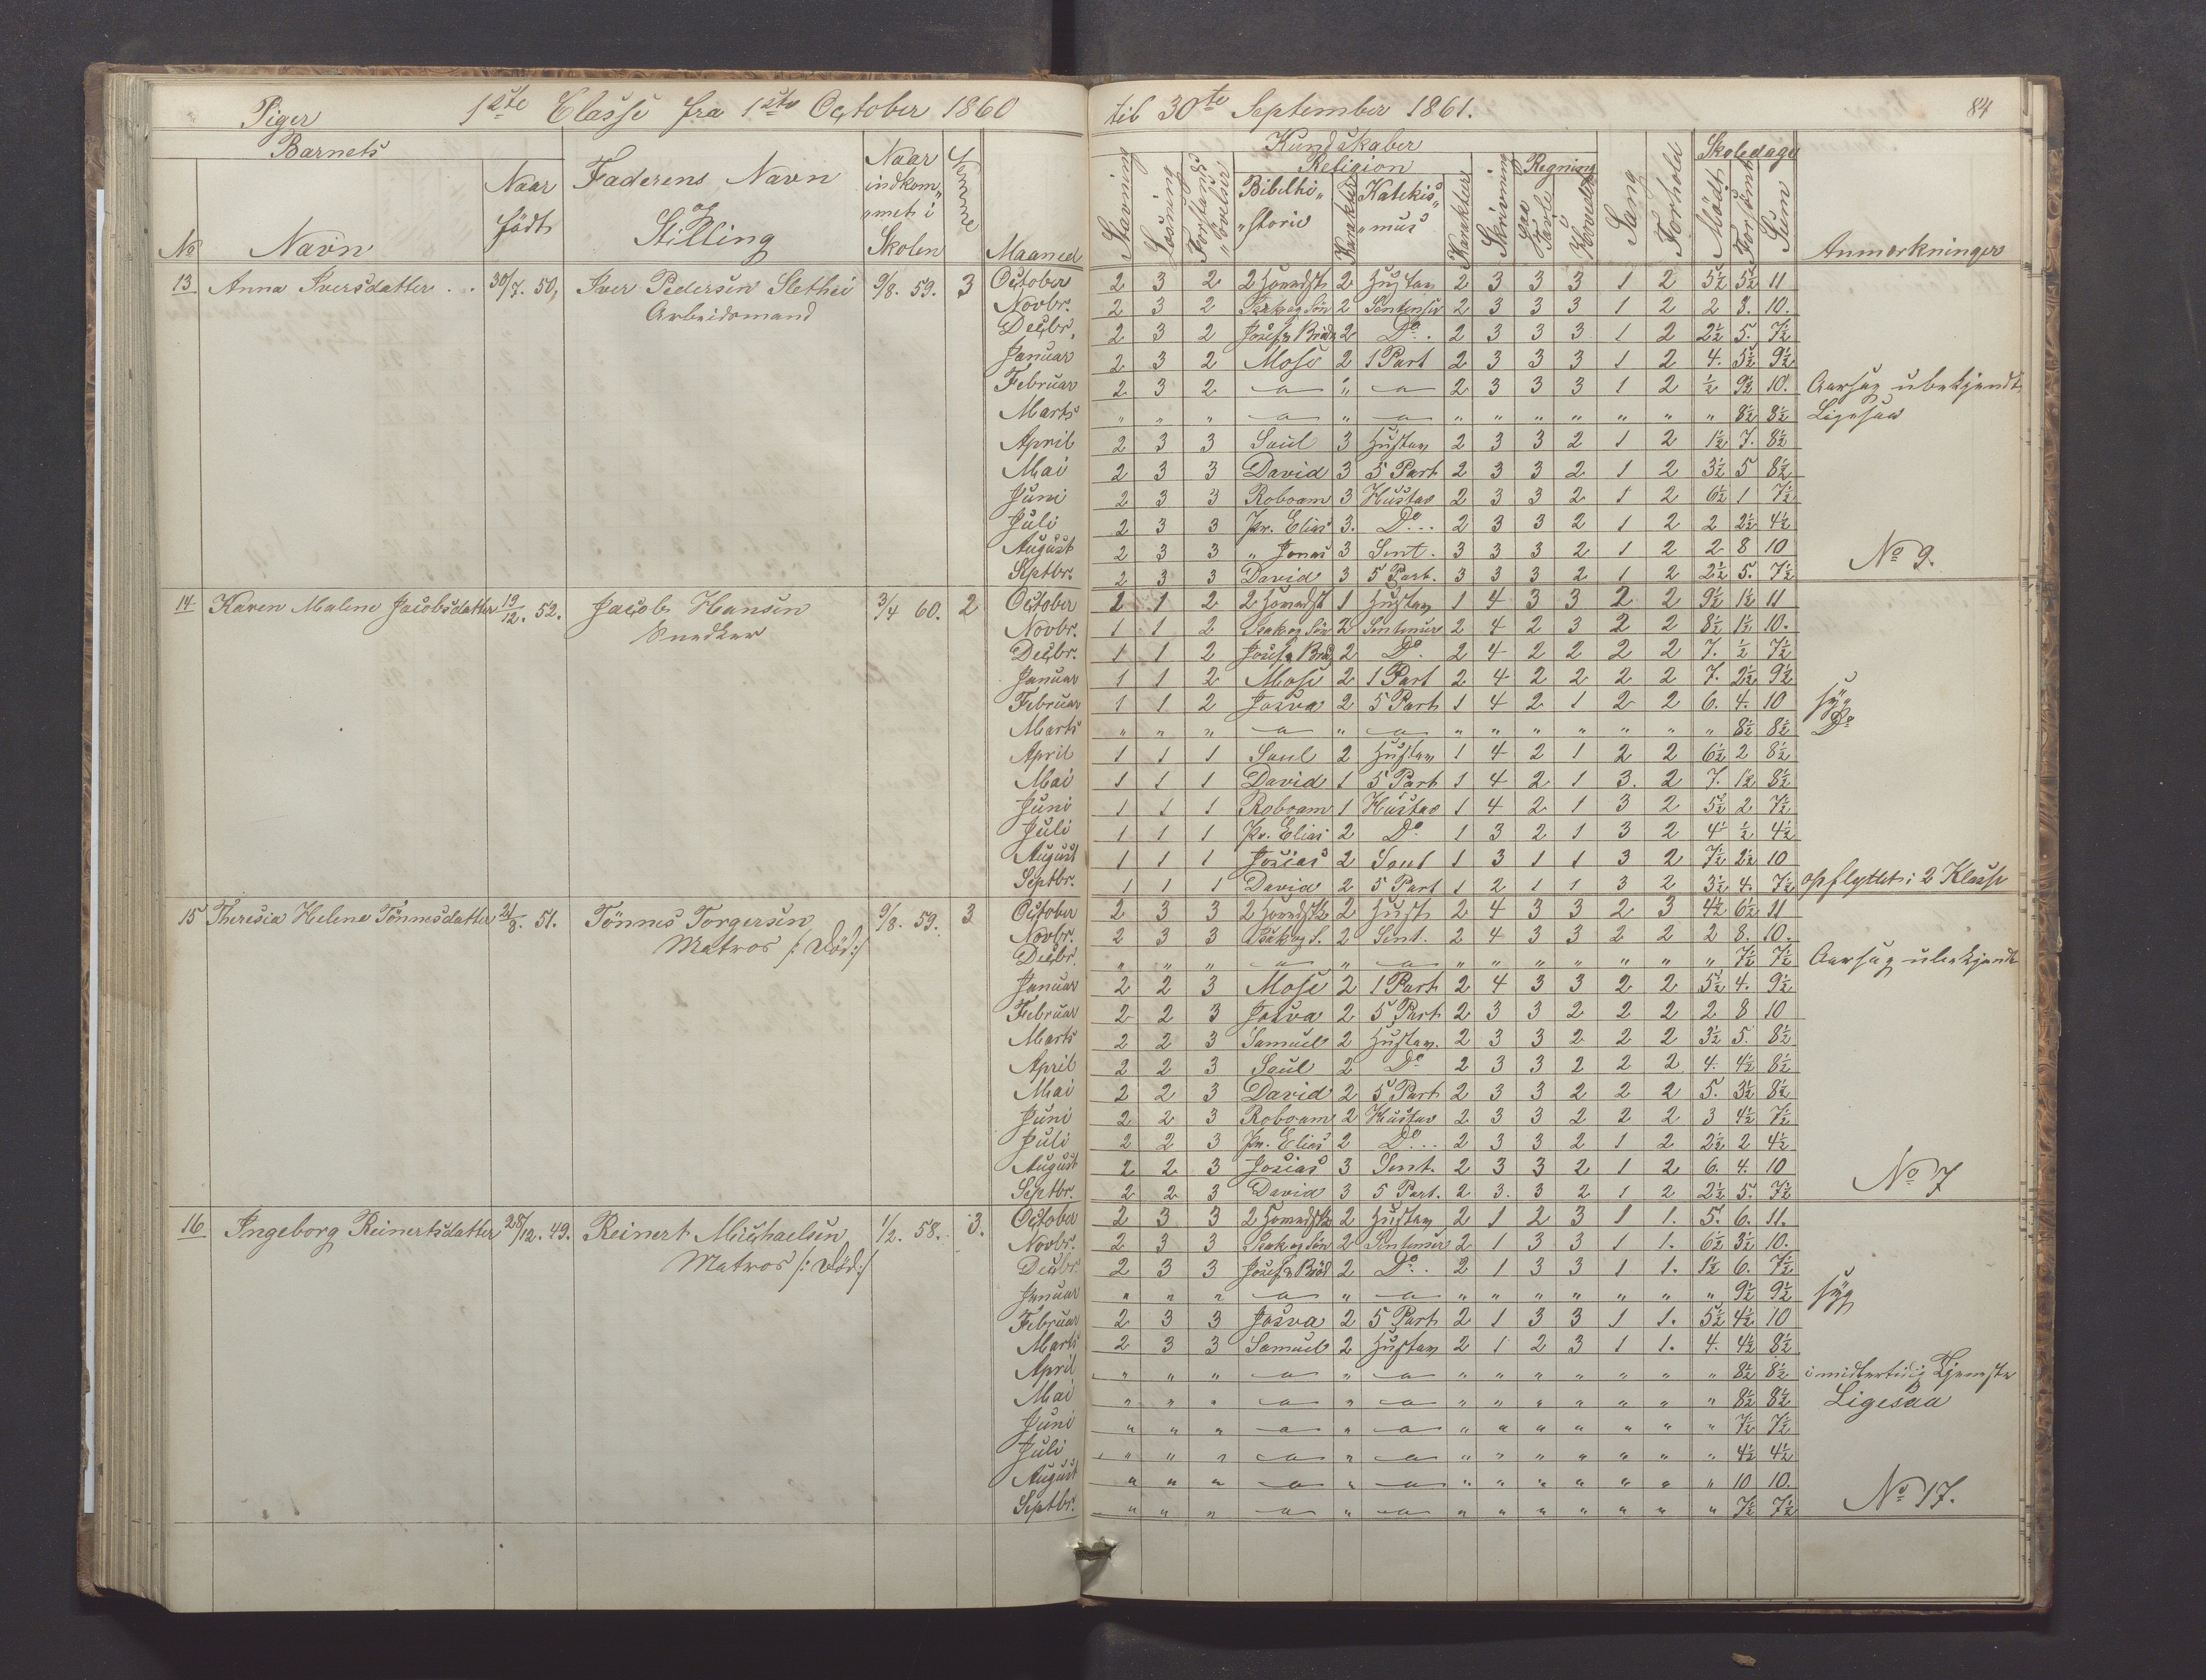 Piger 1ste Classe fra 1ste October 1860 til 30te September 1861. 84
Barnets Kundskaber Skoledage
No Navn Naar født Faderens Navn og Stilling Naar indkommet i Skolen Evne Maaned Stavning Læsning Forstandsøvelser Religion Bibelhistorie Karakter Katekismus Karakter Skrivning Regning Paa Tavle i Hovedet Sang Forhold Mødt Forsømt Sum Anmærkninger
13 Anna Iversdatter . . 30/7. 50, Iver Pedersen Slethei 9/8. 59. 3 October 2 3 2 2 2 Hustav 2 3 3 3 1 2 5½ 5½ 11
Arbeidsmand Novbr. 2 3 2 Isak og Søn 2 Sentenser 2 3 3 3 1 2 2 8. 10.
Decbr. 2 3 2 Josef & Brødr 2 Do. 2 3 3 3 1 2 2½ 5. 7½
Januar 2 3 2 Mose 2 1 Part 2 3 3 3 1 2 4. 5½ 9½
Februar 2 3 2 — " — 2 3 3 3 1 2 ½ 9½ 10. Aarsag ubekjendt
Marts " " " — " — " " " " " " " 8½ 8½ Ligesaa
April 2 3 3 Saul 3 Hustav 2 3 3 2 1 2 1½ 7. 8½
Mai 2 3 3 David 3 5 Part 2 3 3 2 1 2 3½ 5 8½
Juni 2 3 3 Roboam 3 Hustav 2 3 3 2 1 2 6½ 1 7½
Juli 2 3 3 Pr. Elias 3. Do .. 2 3 3 2 1 2 2 2½ 4½
August 2 3 3 " Jonas 3 Sent. 3 3 3 2 1 2 2 8 10 No 9.
Septbr. 2 3 3 David 3 5 Part. 3 3 3 2 1 2 2½ 5. 7½
14 Karen Malene Jacobsdatter 19/12. 52. Jacob Hansen 3/4 60. 2 October 2 1 2 2 1 Hustav 1 4 3 3 2 2 9½ 1½ 11
Snedker Novbr. 1 1 2 Isak og Søn 2 Sentenser 2 4 2 3 2 2 8½ 1½ 10.
Decbr. 1 1 2 Josef & Brødr 2 Do. 2 4 2 2 2 2 7. ½ 7½
Januar 1 1 2 Mose 2 1 Part 2 4 2 2 2 2 7. 2½ 9½
Februar 1 1 2 Josva 2 5 Part 1 4 2 1 2 2 6. 4. 10 syg
Marts " " " — " — " " " " " " " 8½ 8½ Do
April 1 1 1 Saul 2 Hustav 1 4 2 1 2 2 6½ 2 8½
Mai 1 1 1 David 1 5 Part 1 4 2 1 3. 2 7. 1½ 8½
Juni 1 1 1 Roboam 1 Hustav 1 4 2 1 3 2 5½ 2 7½
Juli 1 1 1 Pr. Elias 2 Do 1 3 2 1 3 2 4 ½ 4½
August 1 1 1 Josias 2 Sent 1 3 1 1 3 2 7½ 2½ 10
Septbr. 1 1 1 David 2 5 Part 1 2 1 1 3 2 3½ 4. 7½ opflyttet i 2 Klasse
15 Theresia Helene Tönnesdatter 21/8. 51. Tönnes Torgersen 9/8. 59. 3 October 2 3 3 2 2 Hust 2 4 3 3 2 3 4½ 6½ 11
Matros /: död :/ Novbr. 2 3 3 Isak og S. 2 Sent. 2 4 3 3 2 2 2 8. 10.
Decbr. " " " — " — " " " " " " " 7½ 7½ Aarsag ubekjendt
Januar 2 2 3 Mose 2 1 Part 2 4 3 3 2 2 5½ 4. 9½
Februar 2 2 3 Josva 2 5 Part 2 3 3 2 2 2 2 8 10
Marts 2 2 3 Samuel 2 Hustav. 2 3 3 2 2 2 3½ 5. 8½
April 2 2 3 Saul 2 Do 2 3 3 2 2 2 4. 4½ 8½
Mai 2 2 3 David 2 5 Part 2 3 3 2 2 2 5. 3½ 8½
Juni 2 2 3 Roboam 2 Hustav 2 3 3 2 2 2 3 4½ 7½
Juli 2 2 3 Pr. Elias 2 Do .. 2 3 3 2 1 2 2½ 2 4½
August 2 2 3 Josias 3 Sent. 2 3 3 2 1 2 6. 4. 10 No 7
Septbr. 2 2 3 David 3 5 Part. 2 3. 3 2 1 2 2½ 5. 7½
16 Ingeborg Reinertsdatter 25/12. 49. Reinert Michaelsen 1/2. 58. 3. October 2 3 3 2 2 Hustav 2 1 2 3 1 1. 5. 6. 11.
Matros /: död :/ Novbr. 2 3 3 Isak og Søn 2 Sentenser 2 1 3 3 1 1. 6½ 3½ 10.
Decbr 2 3 3 Josef & Brød 2 Do. 2 1 3 3 1 1. 1½ 6. 7½
Januar " " " — " — " " " " " " " 9½ 9½ syg
Februar 2 3 3 Josva 2 5 Part 2 1 3 3 1 1. 5½ 4½ 10
Marts 2 3 3 Samuel 2 Hustav 2 1 2 3 1 1. 4. 4½ 8½
April " " " — " — " " " " " " " 8½ 8½ i midlertidig Tjeneste
Mai " " " — " — " " " " " " " 8½ 8½ Ligesaa
Juni " " " — " — " " " " " " " 7½ 7½
Juli " " " — " — " " " " " " " 4½ 4½
August " " " — " — " " " " " " " 10 10.
Septbr. " " " — " — " " " " " " " 7½ 7½ No 17.